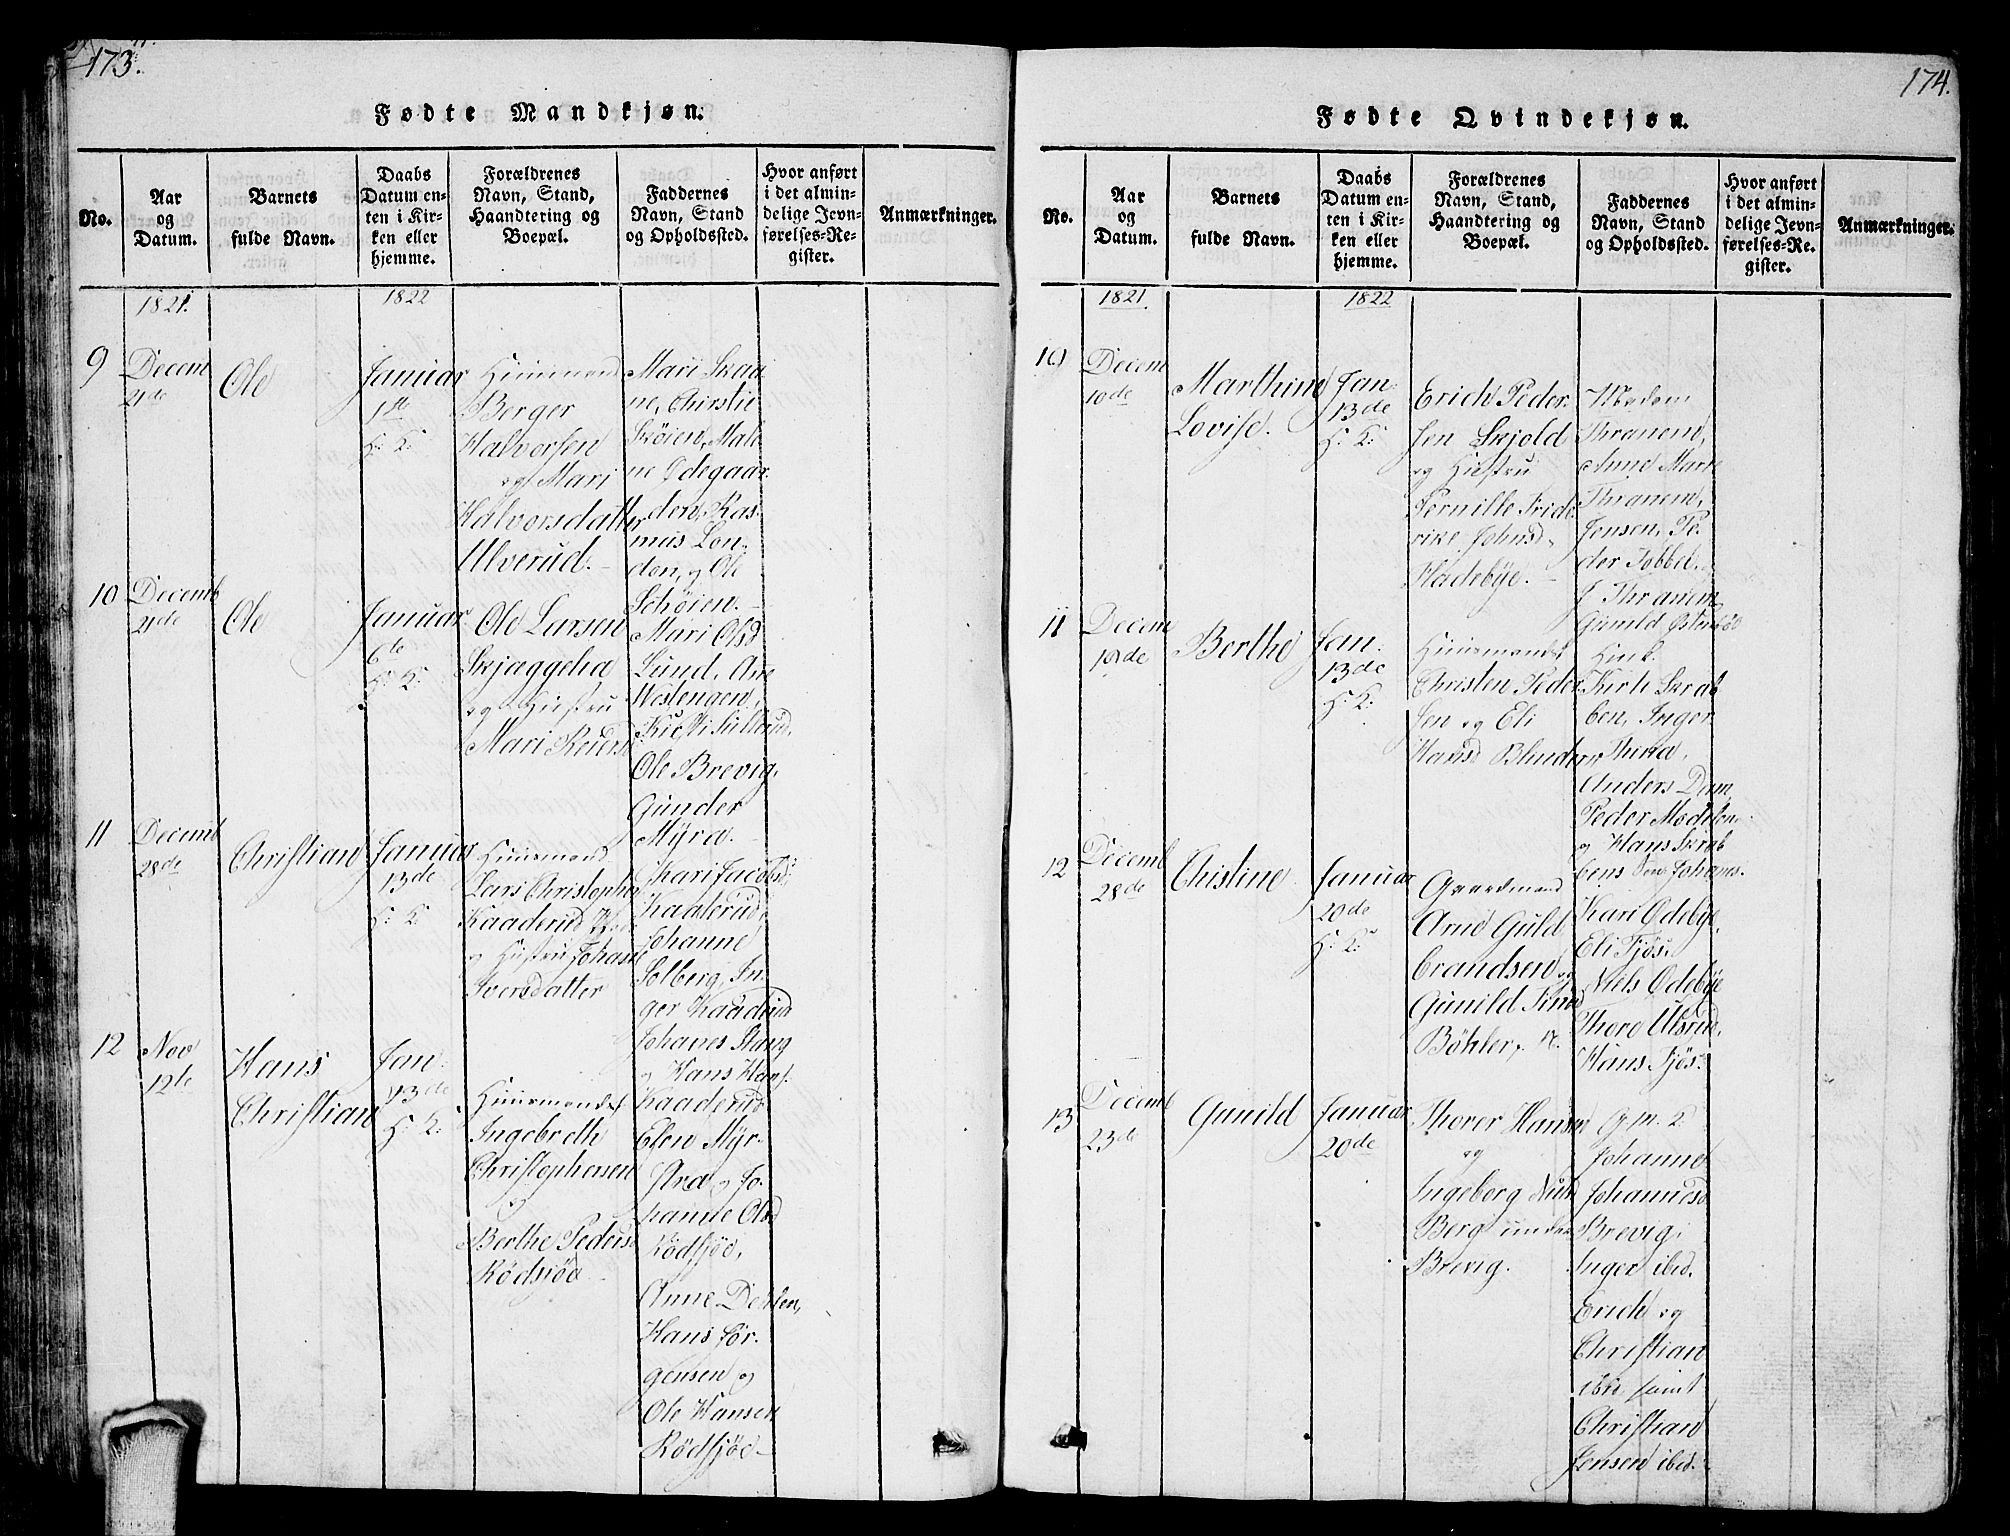 173.
Fødte Mandkjøn.
No.
Aar
og
Datum.
Barnets
fulde Navn.
Daabs
Datum en-
ten i Kir-
ken eller
hjemme.
Forældrenes
Navn, Stand,
Haandtering og
Boepæl.
Faddernes
Navn, Stand
og Opholdssted.
Hvor anført
i det almin-
delige Jevn-
førelses-Re-
gister.
Anmærkninger.
1821.
1822
9
Decem
21de
Ole
Januar
1te
H: K:
Huusmand
Berger
Halvorsen
og Mari
Halvorsdatter
Ulverud.
Mari Skaa
ne, Chirstie
Skøien, Male
ne Ødegaar
den, Ras-
mus Lon-
don, og Ole
Schøien.
10
Decemb
21de
Ole
Januar
6te
H: K:
Ole Larsen
Skjæggeha
og Hustru
Mari Reiersd
Mari Olsd
Lund, Ane
Westengen,
Ole Brevig,
Gunder
Myra.
11
Decemb
28de
Christian
Januar
13de
H: K:
Huusmand
Lars Christopher
Kaaderud
og Hustru Johane
Iversdatter
Kari Jacobsd
Kaaterud,
Johanne
Solberg, In-
ger Kaaderud
Johanes Stang
og Hans Hans.
Kaaderud
12
Nov
12te
Hans
Christian
Jan:
13de
H: K:
Huusmand
Ingebreth
Christophersen
og
Berthe Pedersd
Rødsjøe
Elen Myr-
stra og Jo-
hanne Olsd
Rødsjøe,
Anne Dehlen,
Hans Jør-
gensen og
Ole Hansen
Rødsjøe
174.
Fødte Qvindekjøn.
No.
Aar
og
Datum.
Barnets
fulde Navn.
Daabs
Datum en-
ten i Kir-
ken eller
hjemme.
Forældrenes
Navn, Stand,
Haandtering og
Boepæl.
Faddernes
Navn, Stand
og Opholdssted.
Hvor anført
i det almin-
delige Jevn-
førelses-Re-
gister.
Anmærkninger.
1821.
1822
10
Decem
10de
Marthine
Lovise.
Jan:
13de
H: K:
Erich Peder-
sen Skjold
og Hustru
Pernille Fride-
rike Johnsd
Hadebye.
Madam
Thranem,
Anne Marie
Thranem,
Jensen, Pe-
der Tobbel.
J Thranem
11
Decem
19de
Berthe
Jan:
13de
H: K:
Huusmand
Christen Peder
sen og Eli
Hansd Blindern
Gunild
Kirh Skrab
ben, Inger
Anders
Peder
og Hans Skrab
bens Søn Johanes.
12
Decemb
28de
Chistine
Januar
20de
H: K:
Gaardmand
Arne Guld
brandsen og
Gunild
Bøhler
Kari Odebye,
Eli Fjøs,
Niels Odebye
Thore Ulsrud,
Hans Fjøs.
13
Decemb
23de
Gunild
Januar
20de
Thorer Hansen
og
Ingeborg
Berg under
Brevig.
Johanne
Johannesd
Brevig,
Inger ibid.
Erich og
Christian
ibid samt
Christian
Jensen ibid.